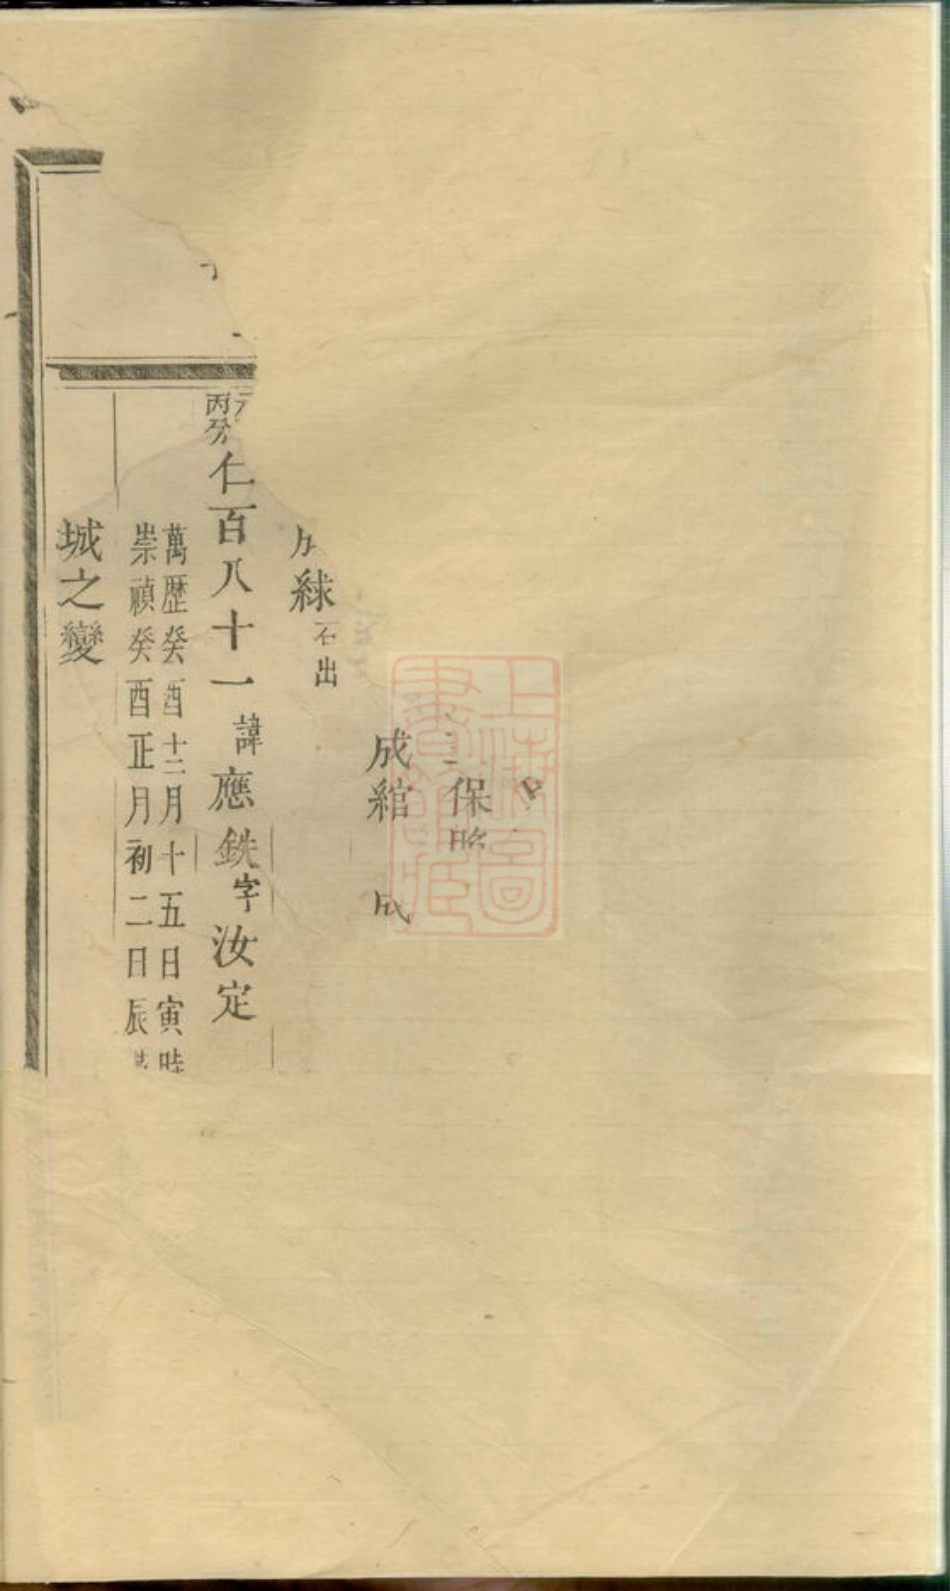 保照
成綰 成
成絿 不出
丙分 仁百八十一 諱應銑 字汝定
萬歷癸酉十二月十五日寅時
崇禎癸酉正月初二日辰
城之變
上海圖書館藏